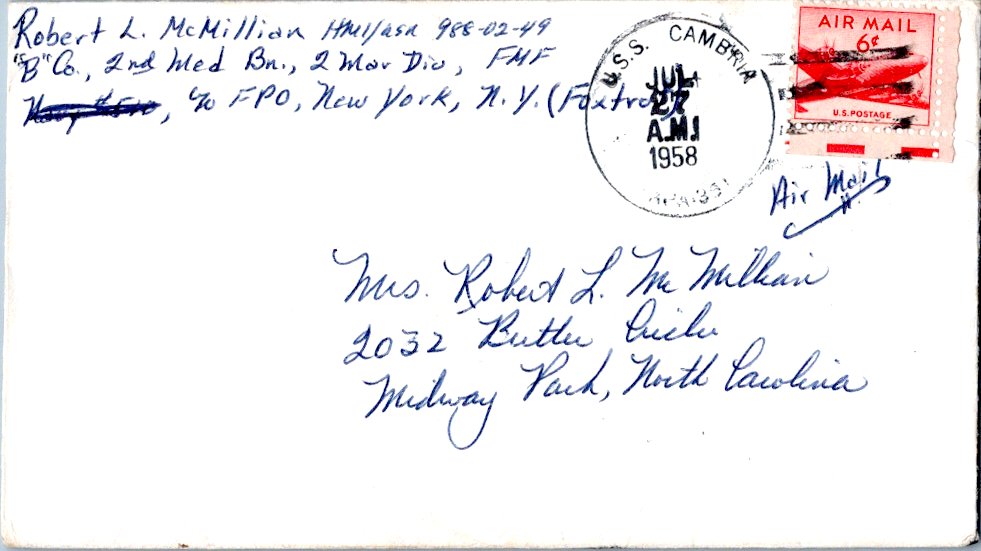 Robert L. McMillian HM1/USN 988-02-49
"B" Co., 2nd Med Bn., 2 Mar Div, FMF
c/o FPO, New York, N.Y. (Foxtrot)
U.S.S. CAMBRIA
JUL
27
A.M.
1958
AIR MAIL
6¢
U.S. POSTAGE
Air Mail
Mrs. Robert L. McMillian
2032 Butler Circle
Midway Park, North Carolina